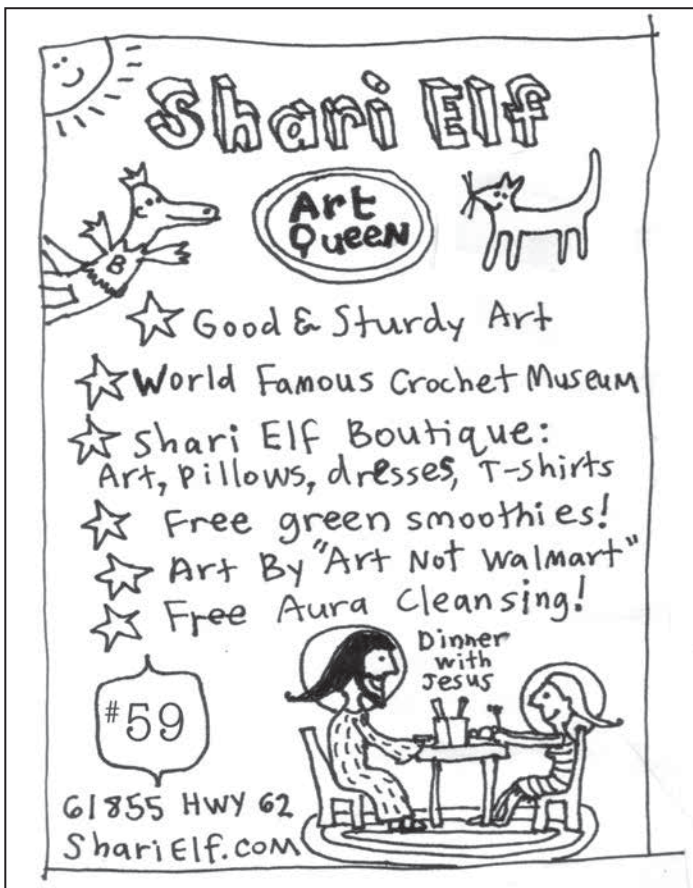 Shari Elf
Art
Queen
B
Good & Sturdy Art
World Famous Crochet Museum
Shari Elf Boutique:
Art, Pillows, dresses, T-shirts
Free green smoothies!
Art By "Art Not Walmart"
Free Aura Cleansing!
Dinner
with
Jesus
#59
61855 HWY 62
ShariElf.com